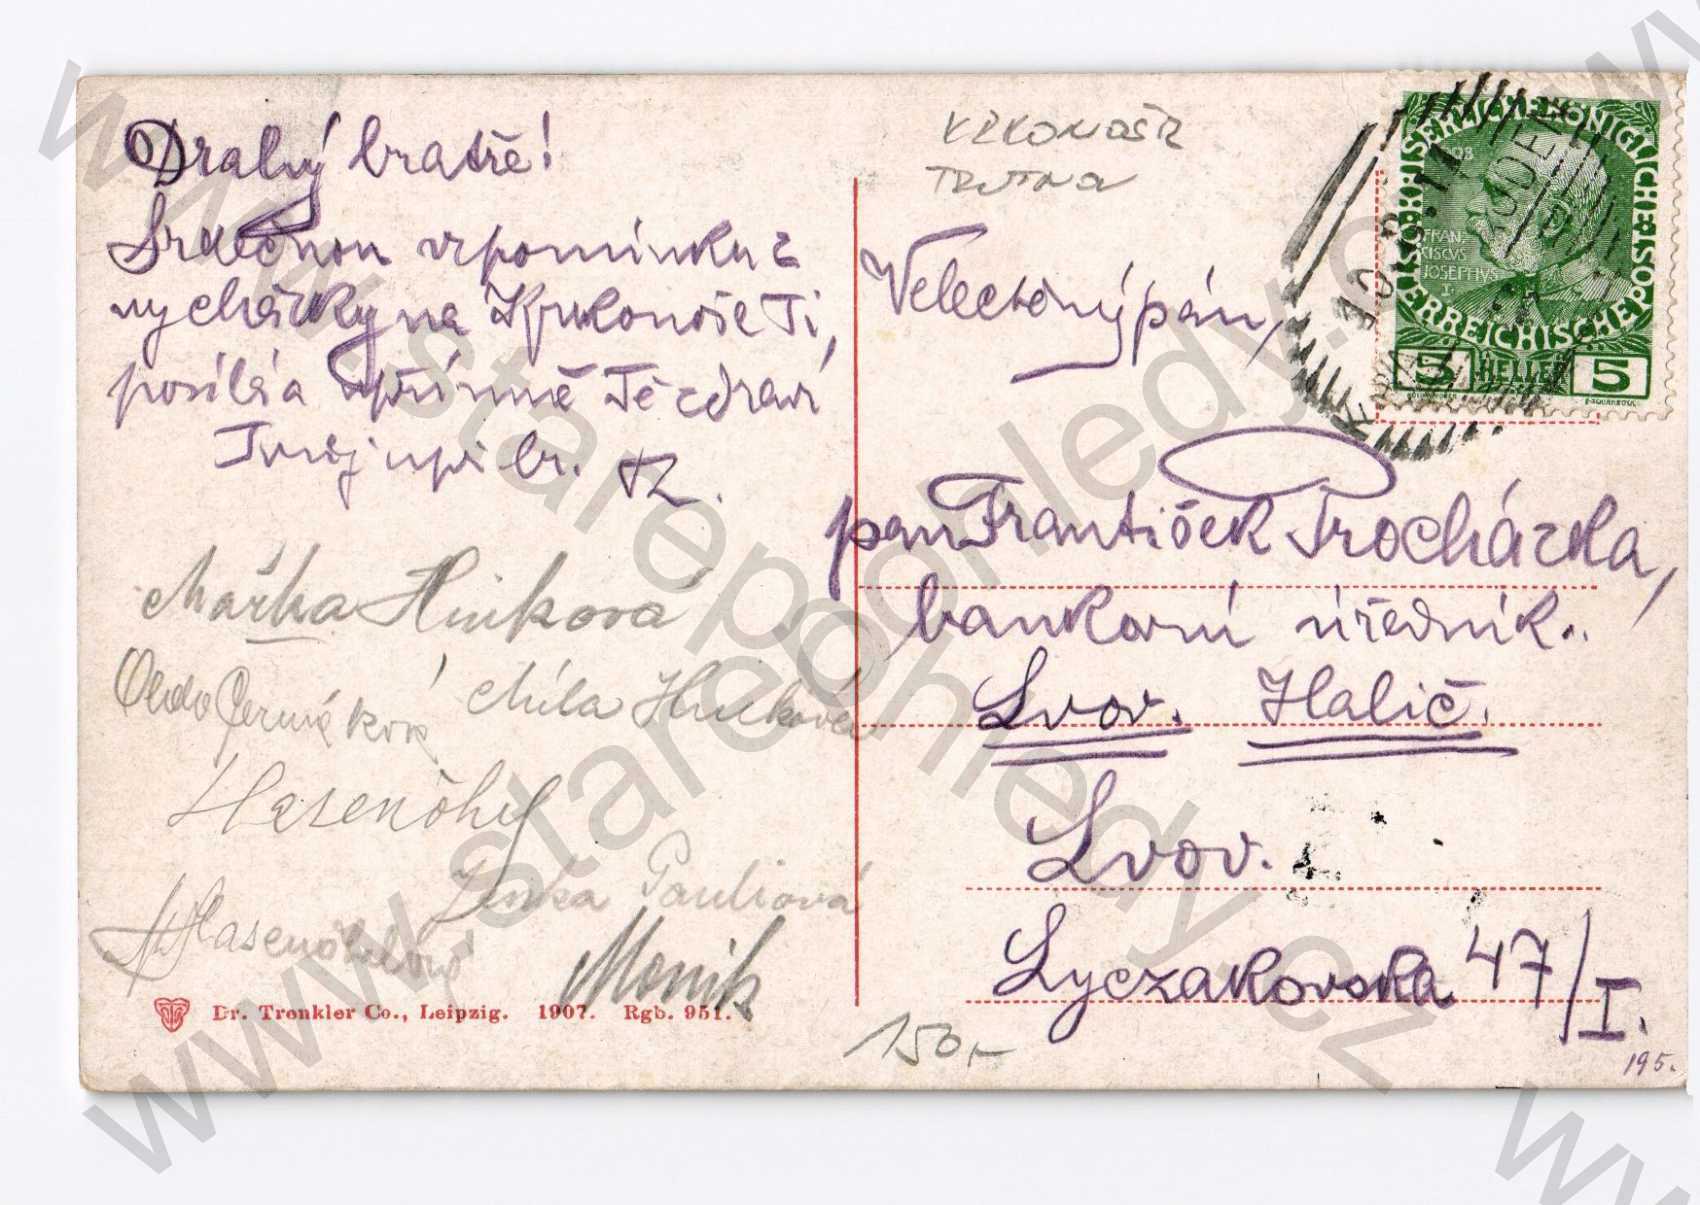 Drahý bratře!
Srdečnou vzpomínku z
vycházky na Krkonoše Ti,
posílá a upřímně Tě zdraví
Tvůj upř. br.
Mařka Hniková
Olda Čermáková
Míla Hniková
Hasenöhrl
Zenka Pauliová
Hasenöhrlová
Monik
Dr. Trenkler Co., Leipzig. 1907. Rgb. 951.
KRKONOŠE
TRUTNOV
Velectěný pán,
pan František Procházka,
bankovní úředník.
Lvov. Halič.
Lvov.
Lyczakovska 47/I.
150,-
195.
KAISERLICHE KÖNIGLICHE ÖSTERREICHISCHE POST
FRAN-
CISCVS
JOSEPHVS
I.
5 HELLER 5
www.starepohledy.cz
www.starepohledy.cz